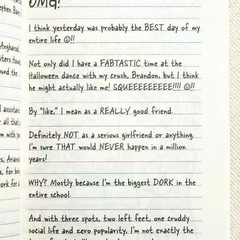 OMG!
I think yesterday was probably the BEST day of my
entire life ☺!!
Not only did I have a FABTASTIC time at the
Halloween dance with my crush, Brandon, but I think
he might actually like me! SQUEEEEEEEEE!!!! ☺!!
By "like," I mean as a REALLY good friend.
Definitely NOT as a serious girlfriend or anything.
I'm sure THAT would NEVER happen in a million
years!
WHY? Mostly because I'm the biggest DORK in the
entire school.
And with three spots, two left feet, one cruddy
social life and zero popularity, I'm not exactly the